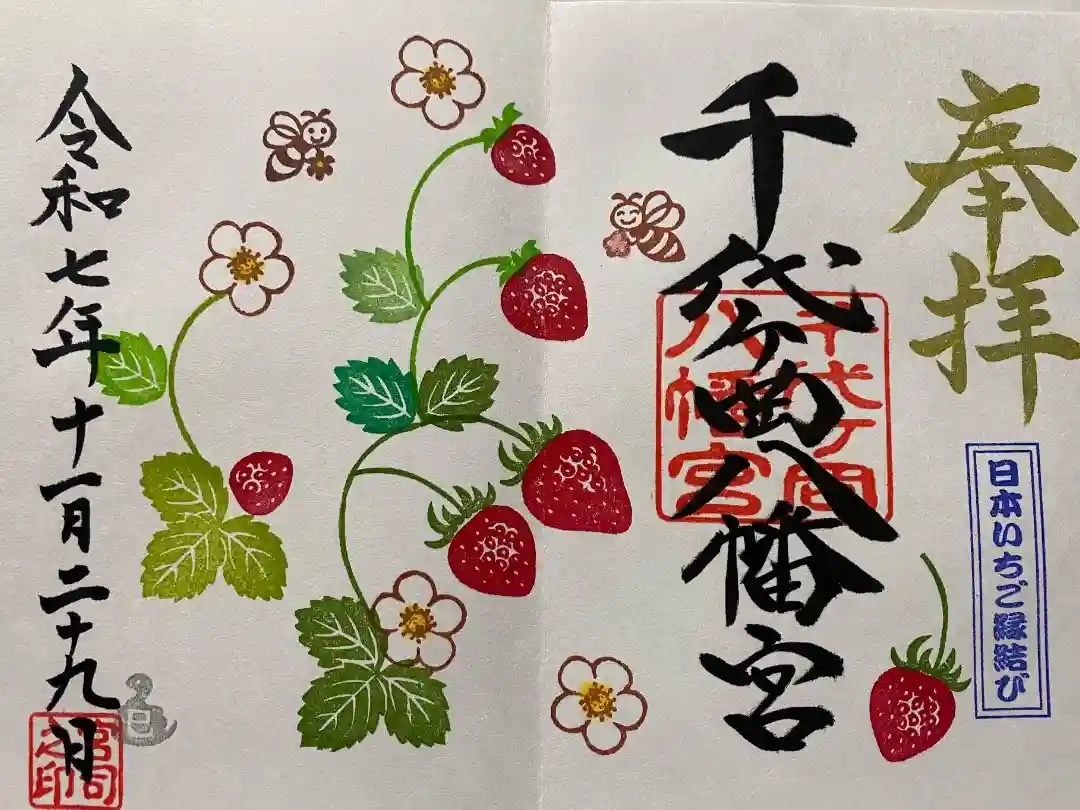 奉拝
日本いちご縁結び
千代ヶ岡八幡宮
千代ヶ岡
八幡宮
令和七年十一月二十九日
宮司
之印